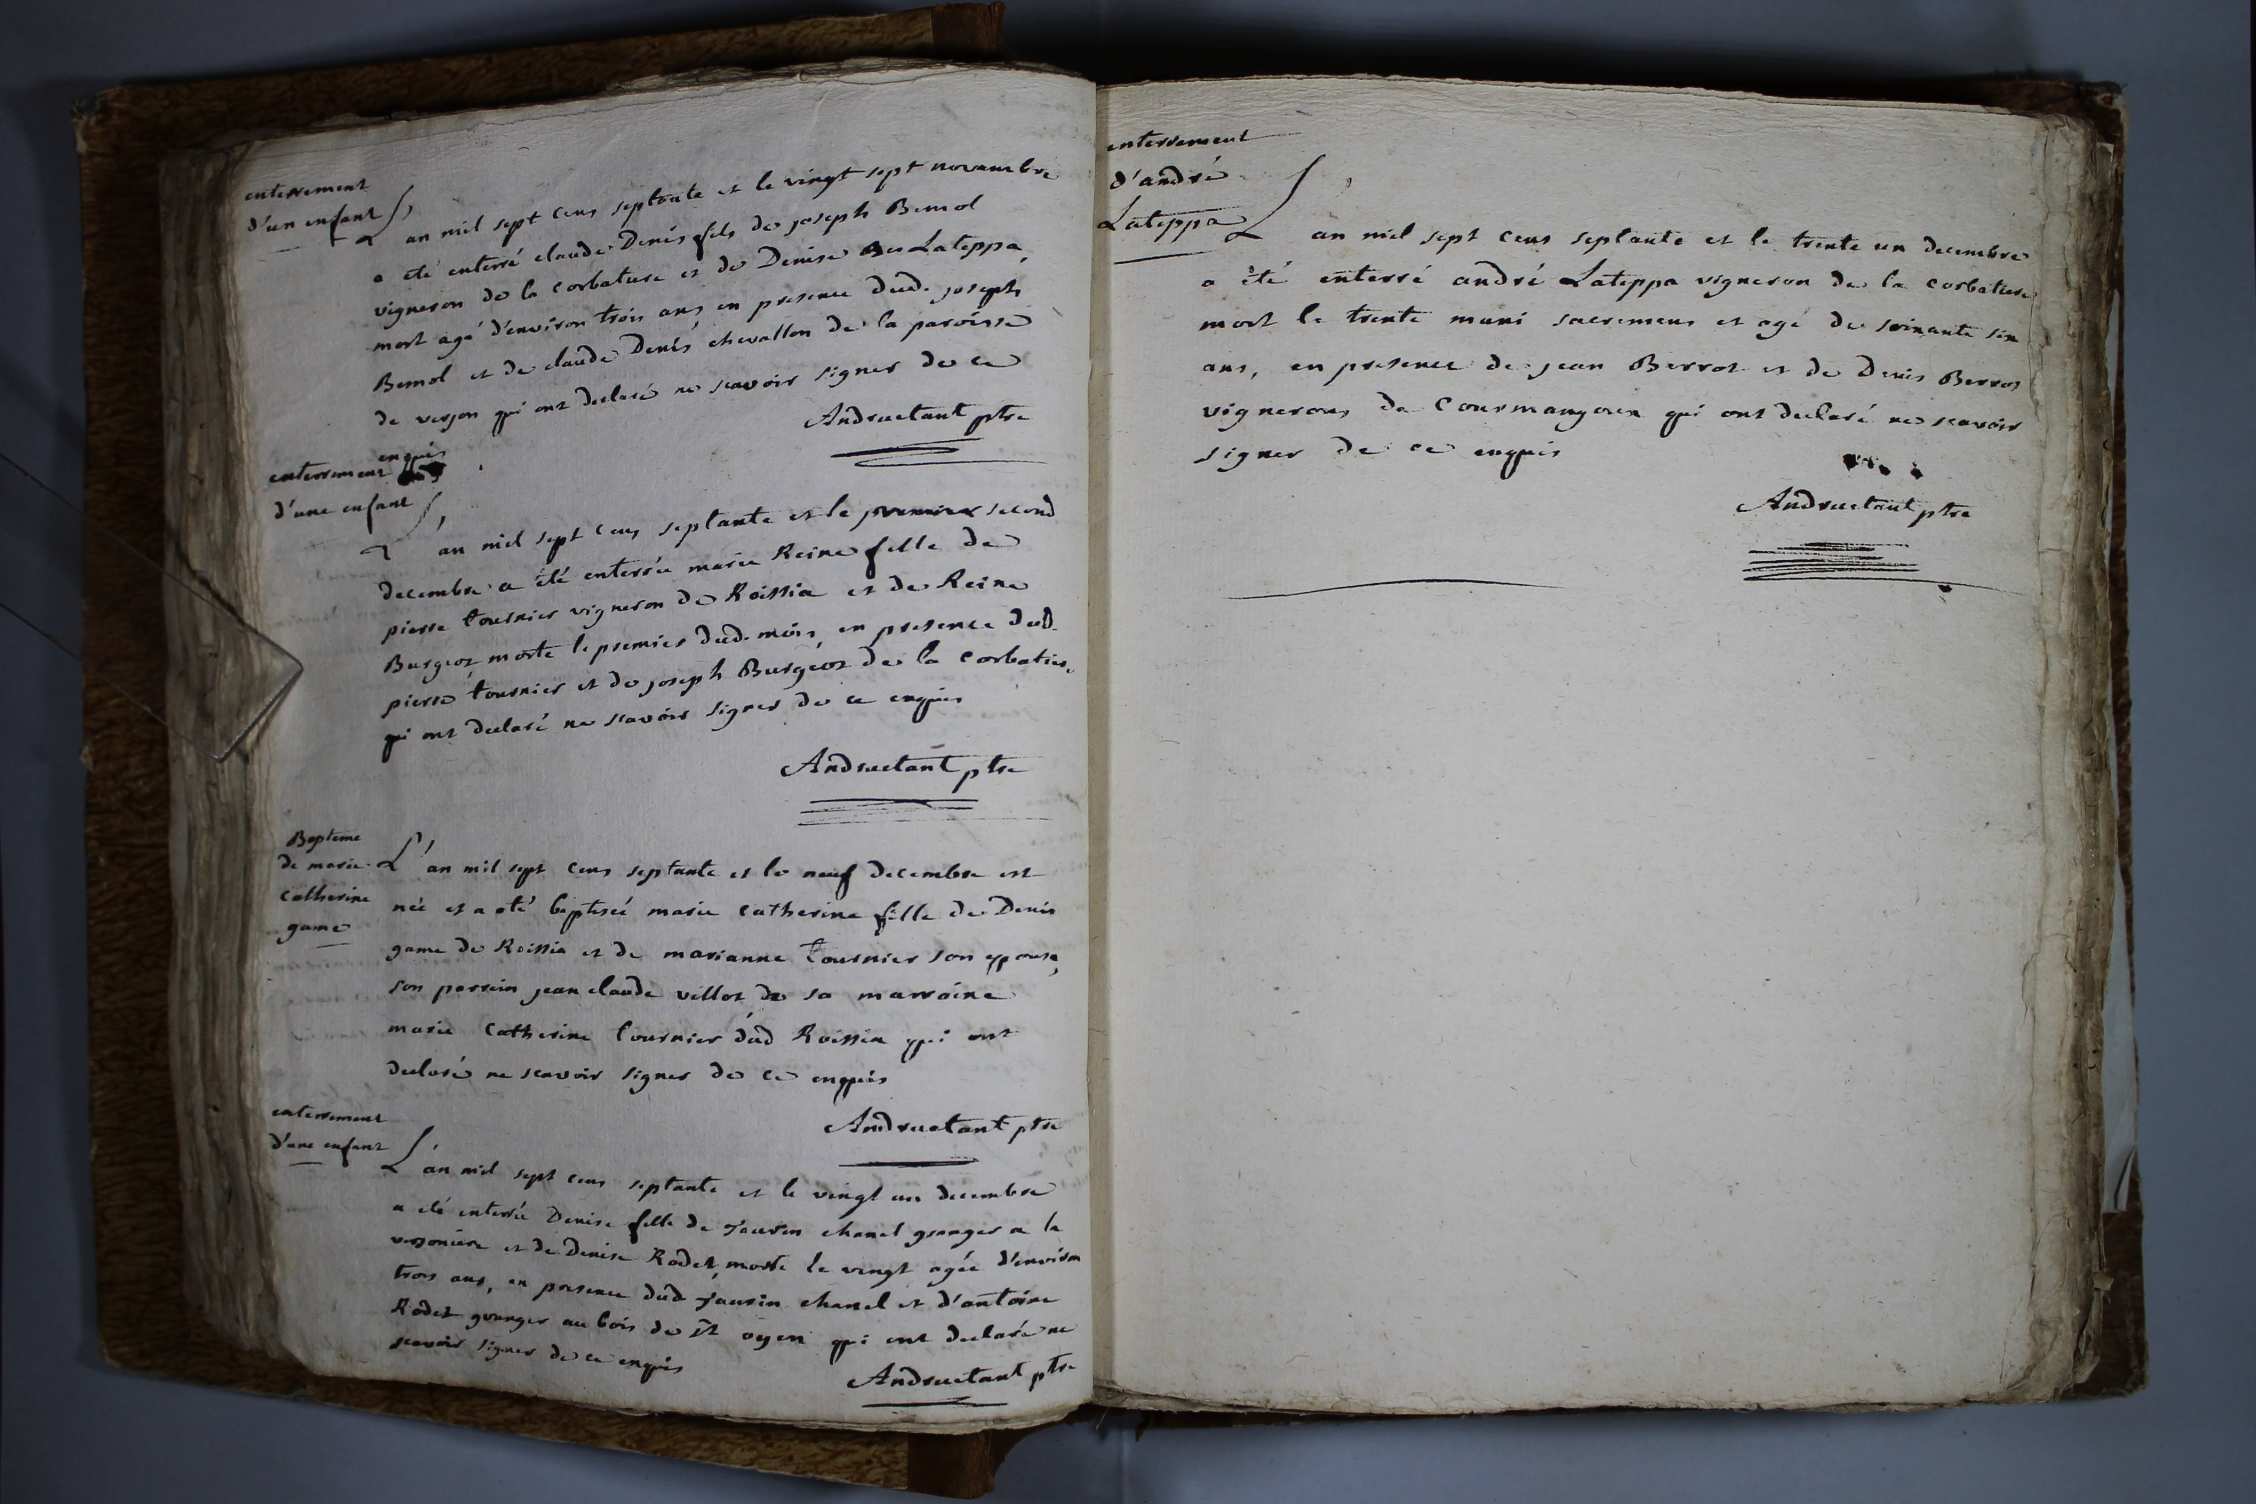 enterrement
d'un enfant
L'an mil sept cens septante et le vingt sept novembre
a été enterré claude Denis fils de joseph Bemol
vigneron de la Corbature et de Denise Lateppa,
mort agé d'environ trois ans en presence dud. joseph
Bemol et de claude Denis chevallon de la paroisse
de verjon qui ont declaré ne scavoir signer de ce
enquis
Andructant ptre
enterrement
d'une enfant
L'an mil sept cens septante et le premier second
decembre a été enterrée marie Reine fille de
pierre tournier vigneron de Roissia et de Reine
Burgeoz morte le premier dud. mois, en presence dud.
pierre tournier et de joseph Burgeoz de la Corbature
qui ont declaré ne scavoir signer de ce enquis
Andructant ptre
Bapteme
de marie
Catherine
game
L'an mil sept cens septante et le neuf decembre est
née et a été baptisée marie Catherine fille de Denis
game de Roissia et de marianne tournier son epouse,
son parrein jean claude villoz sa marraine
marie Catherine tournier dud Roissia qui ont
declaré ne scavoir signer de ce enquis
Andructant ptre
enterrement
d'une enfant
L'an mil sept cens septante et le vingt un decembre
a été enterrée Denise fille de chanel granger a la
et de Denise Rodet, morte le vingt agée d'environ
trois ans, en presence dud chanel et d'antoine
Rodet granger au bois de st oyen qui ont declaré ne
scavoir signer de ce enquis
Andructant ptre
enterrement
d'andré
Lateppa
L'an mil sept cens septante et le trente un decembre
a été enterré andré Lateppa vigneron de la corbature
mort le trente muni sacremens et agé de soixante six
ans, en presence de jean Berroz et de Denis Berroz
vignerons de Courmangoux qui ont declaré ne scavoir
signer de ce enquis
Andructant ptre